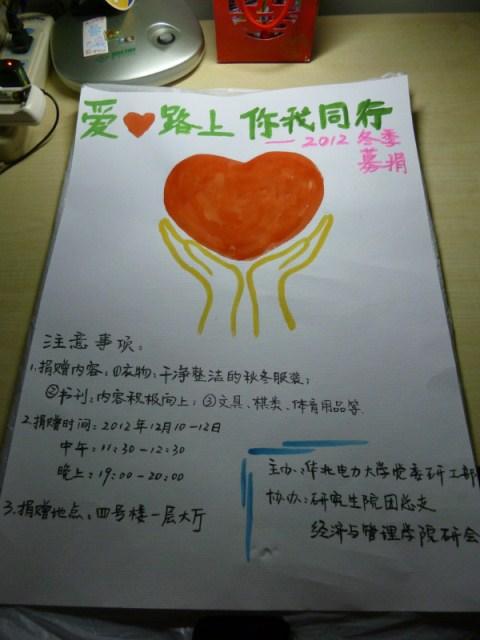 爱❤路上 你我同行
——2012冬季
募捐
注意事项：
1.捐赠内容：①衣物：干净整洁的秋冬服装；
②书刊：内容积极向上；③文具、棋类、体育用品等.
2.捐赠时间：2012年12月10-12日
中午：11:30-12:30
晚上：19:00-20:00
3.捐赠地点：四号楼一层大厅
主办：华北电力大学党委研工部
协办：研究生院团总支
经济与管理学院研会